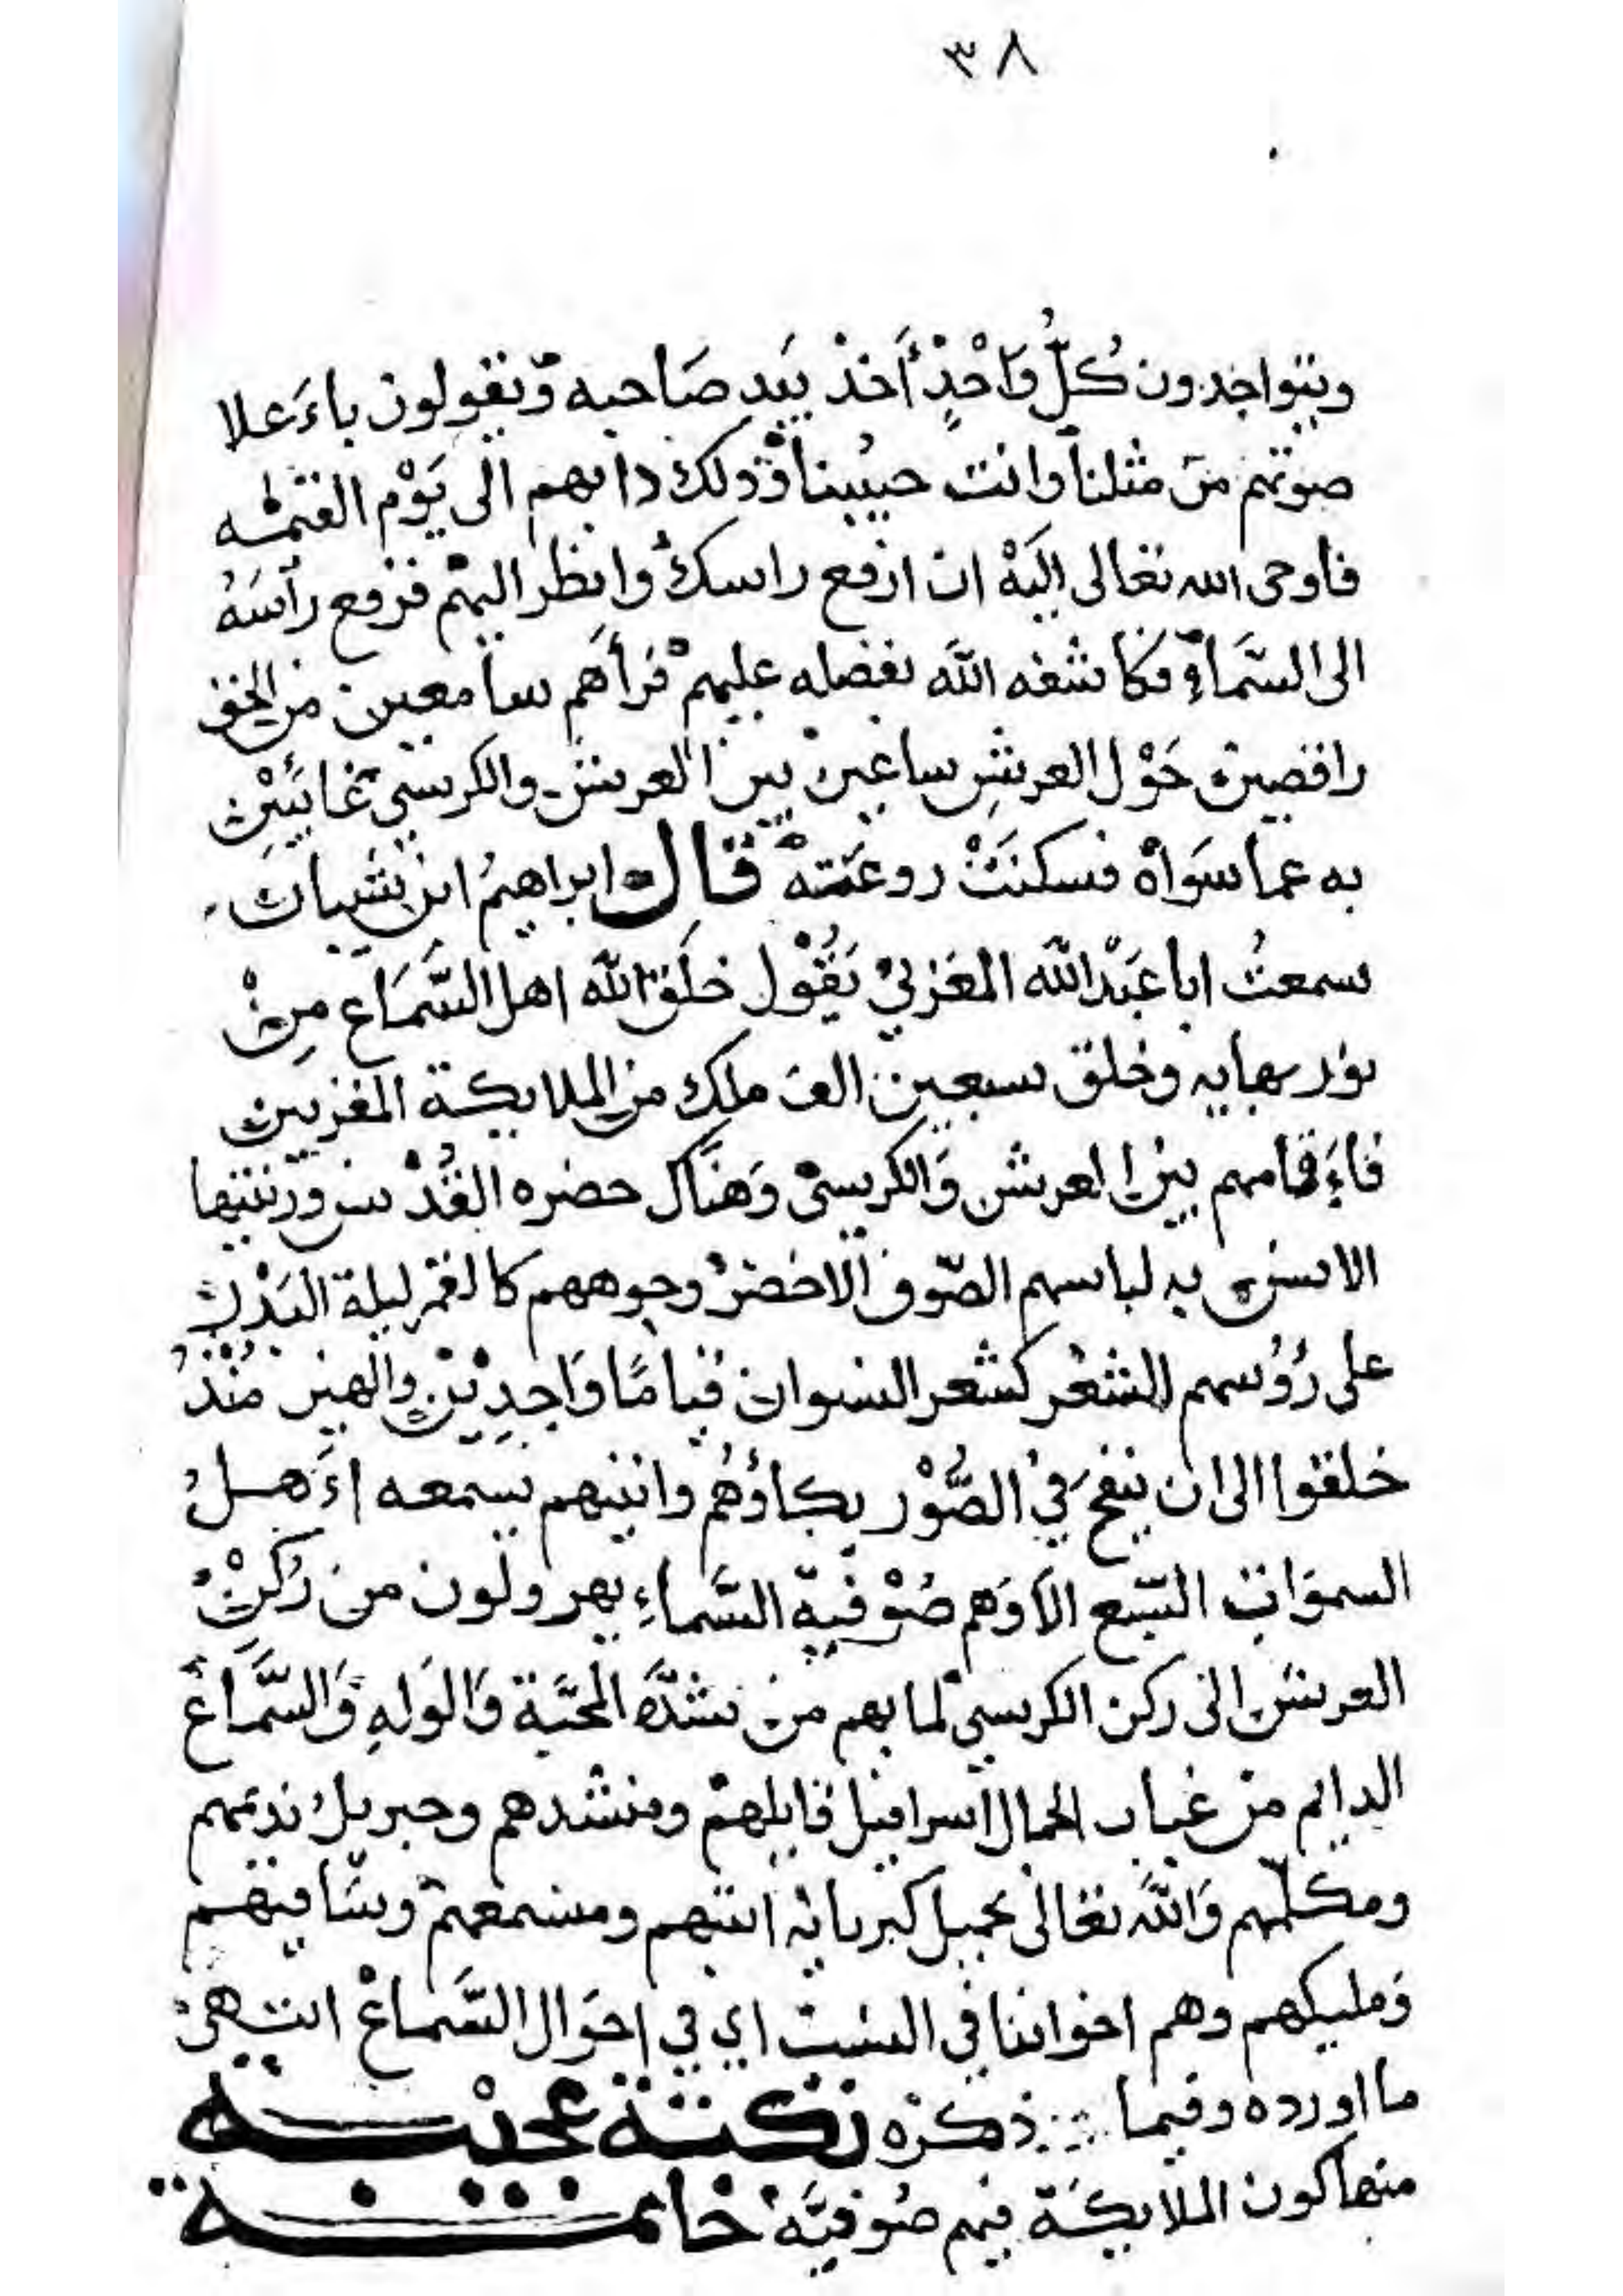 ٣٨
ويتواجدون كُلُّ وَاحْدٍ أَخذ بيَدِ صَاحبه وَيقولون باءَعلا
صوتهم من مثلنا وانت حبيُبنا وَذلك دابهم الى يَوْم القيمه
فأوحى الله تعالى اليَهْ ان ارفع راسك وانظر اليهم فرفع رأسَهُ
الى السَّماءِ فكاشفه اللَّه بفضله عليهمْ فرأهم سامعين من الحق
راقصين حَوْل العرشِ ساعين بين العرش والكرسي غائبين
به عما سَوَاهْ فسكنَتْ روعَته قال ابراهيمُ ابن شيبان
سمعتُ ابا عَبْدالله المغزبي يَقُوْل خلَق الله اهل السَّمَاع مِنْ
نور بهايه وخلق سبعين الف ملك من الملايكة المقربين
فاءَقامهم بين العرش وَالكرسى وَهنَاك حضره القُدْس ورتبتها
الانس به لباسهم الصّوف الاخضرْ وجوههم كالقمر ليلة البَدْر
على رُؤُسهم الشعْر كشعر النسوان قيامًا وَاجدِيْن والهين مُنْذُ
خلقوا الى ان ينفخ في الصُّوْر بكاؤُهُم وانينهم يسمعه اءَهلُ
السموَات السّبع الاَوَهم صُوْفية السَّماءِ يهرولون من رُكنْ
العرش الى ركن الكرسي لما بهم من شدَّه المحَبَّة وَالوَلهِ وَالسَّمَاع
الدايم من غياب الجمال اسرافيل قايلهمْ ومنشدهم وجبريل نديمهم
ومكلّمهم وَاللَّه تعالى بجميل كبريائه انيسهم ومسمعهم وسَاقيهم
وَمليكهم وهم اخواننا في النسبت اي في احوَال السَّماعْ انتهىَ
ما اورده وفيما ذكره نكتة عجيبه
منها كون الملايكَة فيهم صُوفيَّه خاتمة